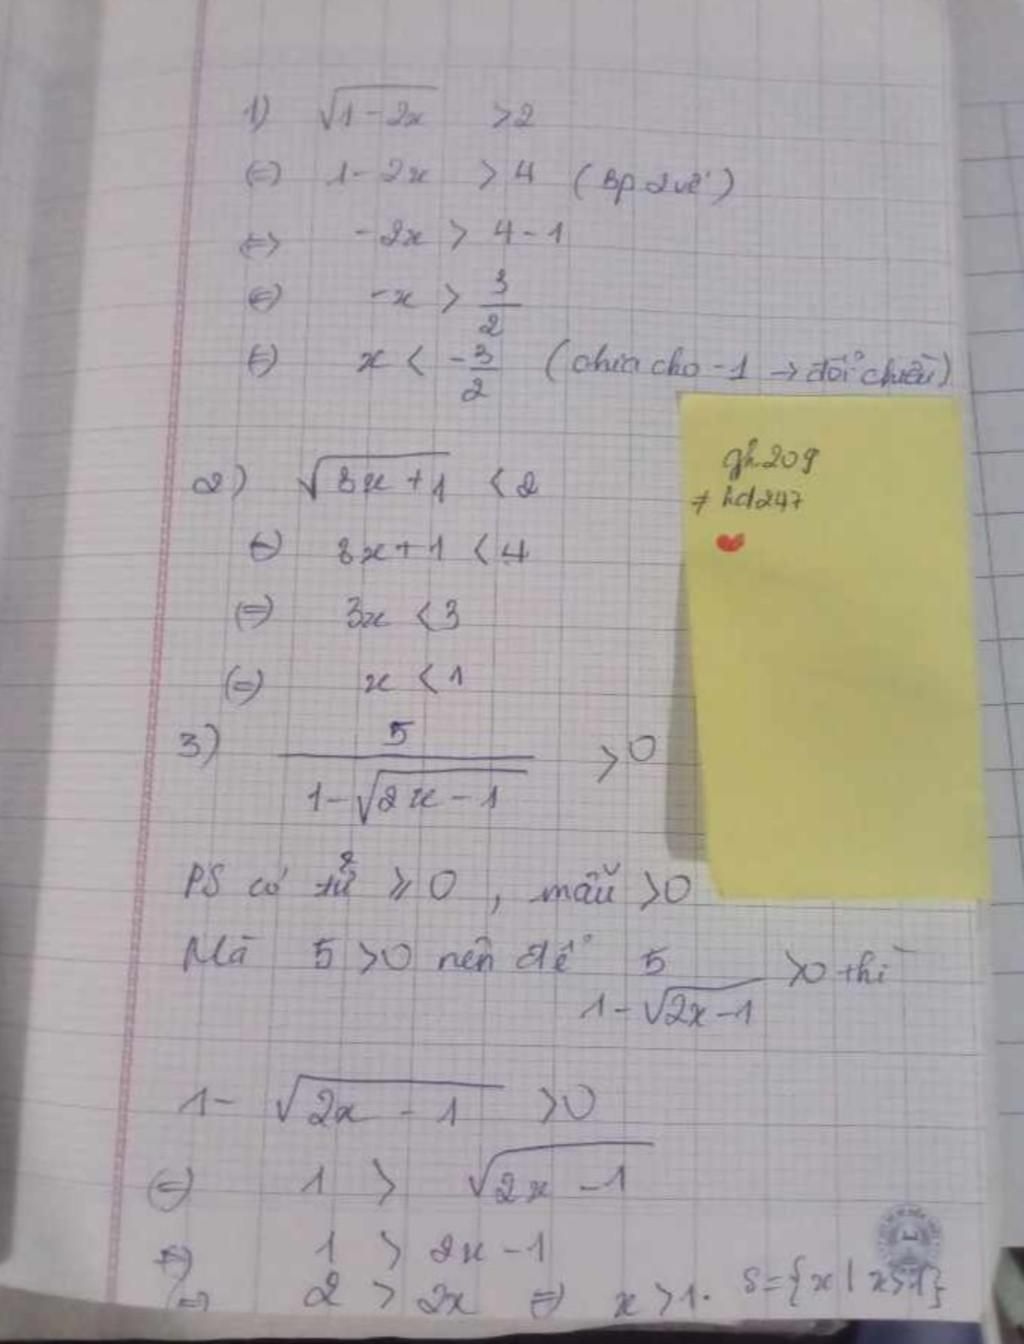 1) √(1-2x) >2
(=) 1-2x > 4 (Bp 2 vế)
<=> -2x > 4-1
(=) -x > 3/2
(=) x < -3/2 (chia cho -1 → đổi chiều)
2) √(3x+1) <2
(=) 3x+1 <4
(=) 3x <3
(=) x <1
3) 5/(1-√(2x-1)) >0
PS có tử ⩾0, mẫu >0
Mà 5>0 nên để 5/(1-√(2x-1)) >0 thì
1- √(2x-1) >0
(=) 1 > √(2x-1)
(=) 1 > 2x-1
(=) 2 > 2x (=) x>1. S={x|x>1}
gh209
≠ hd247